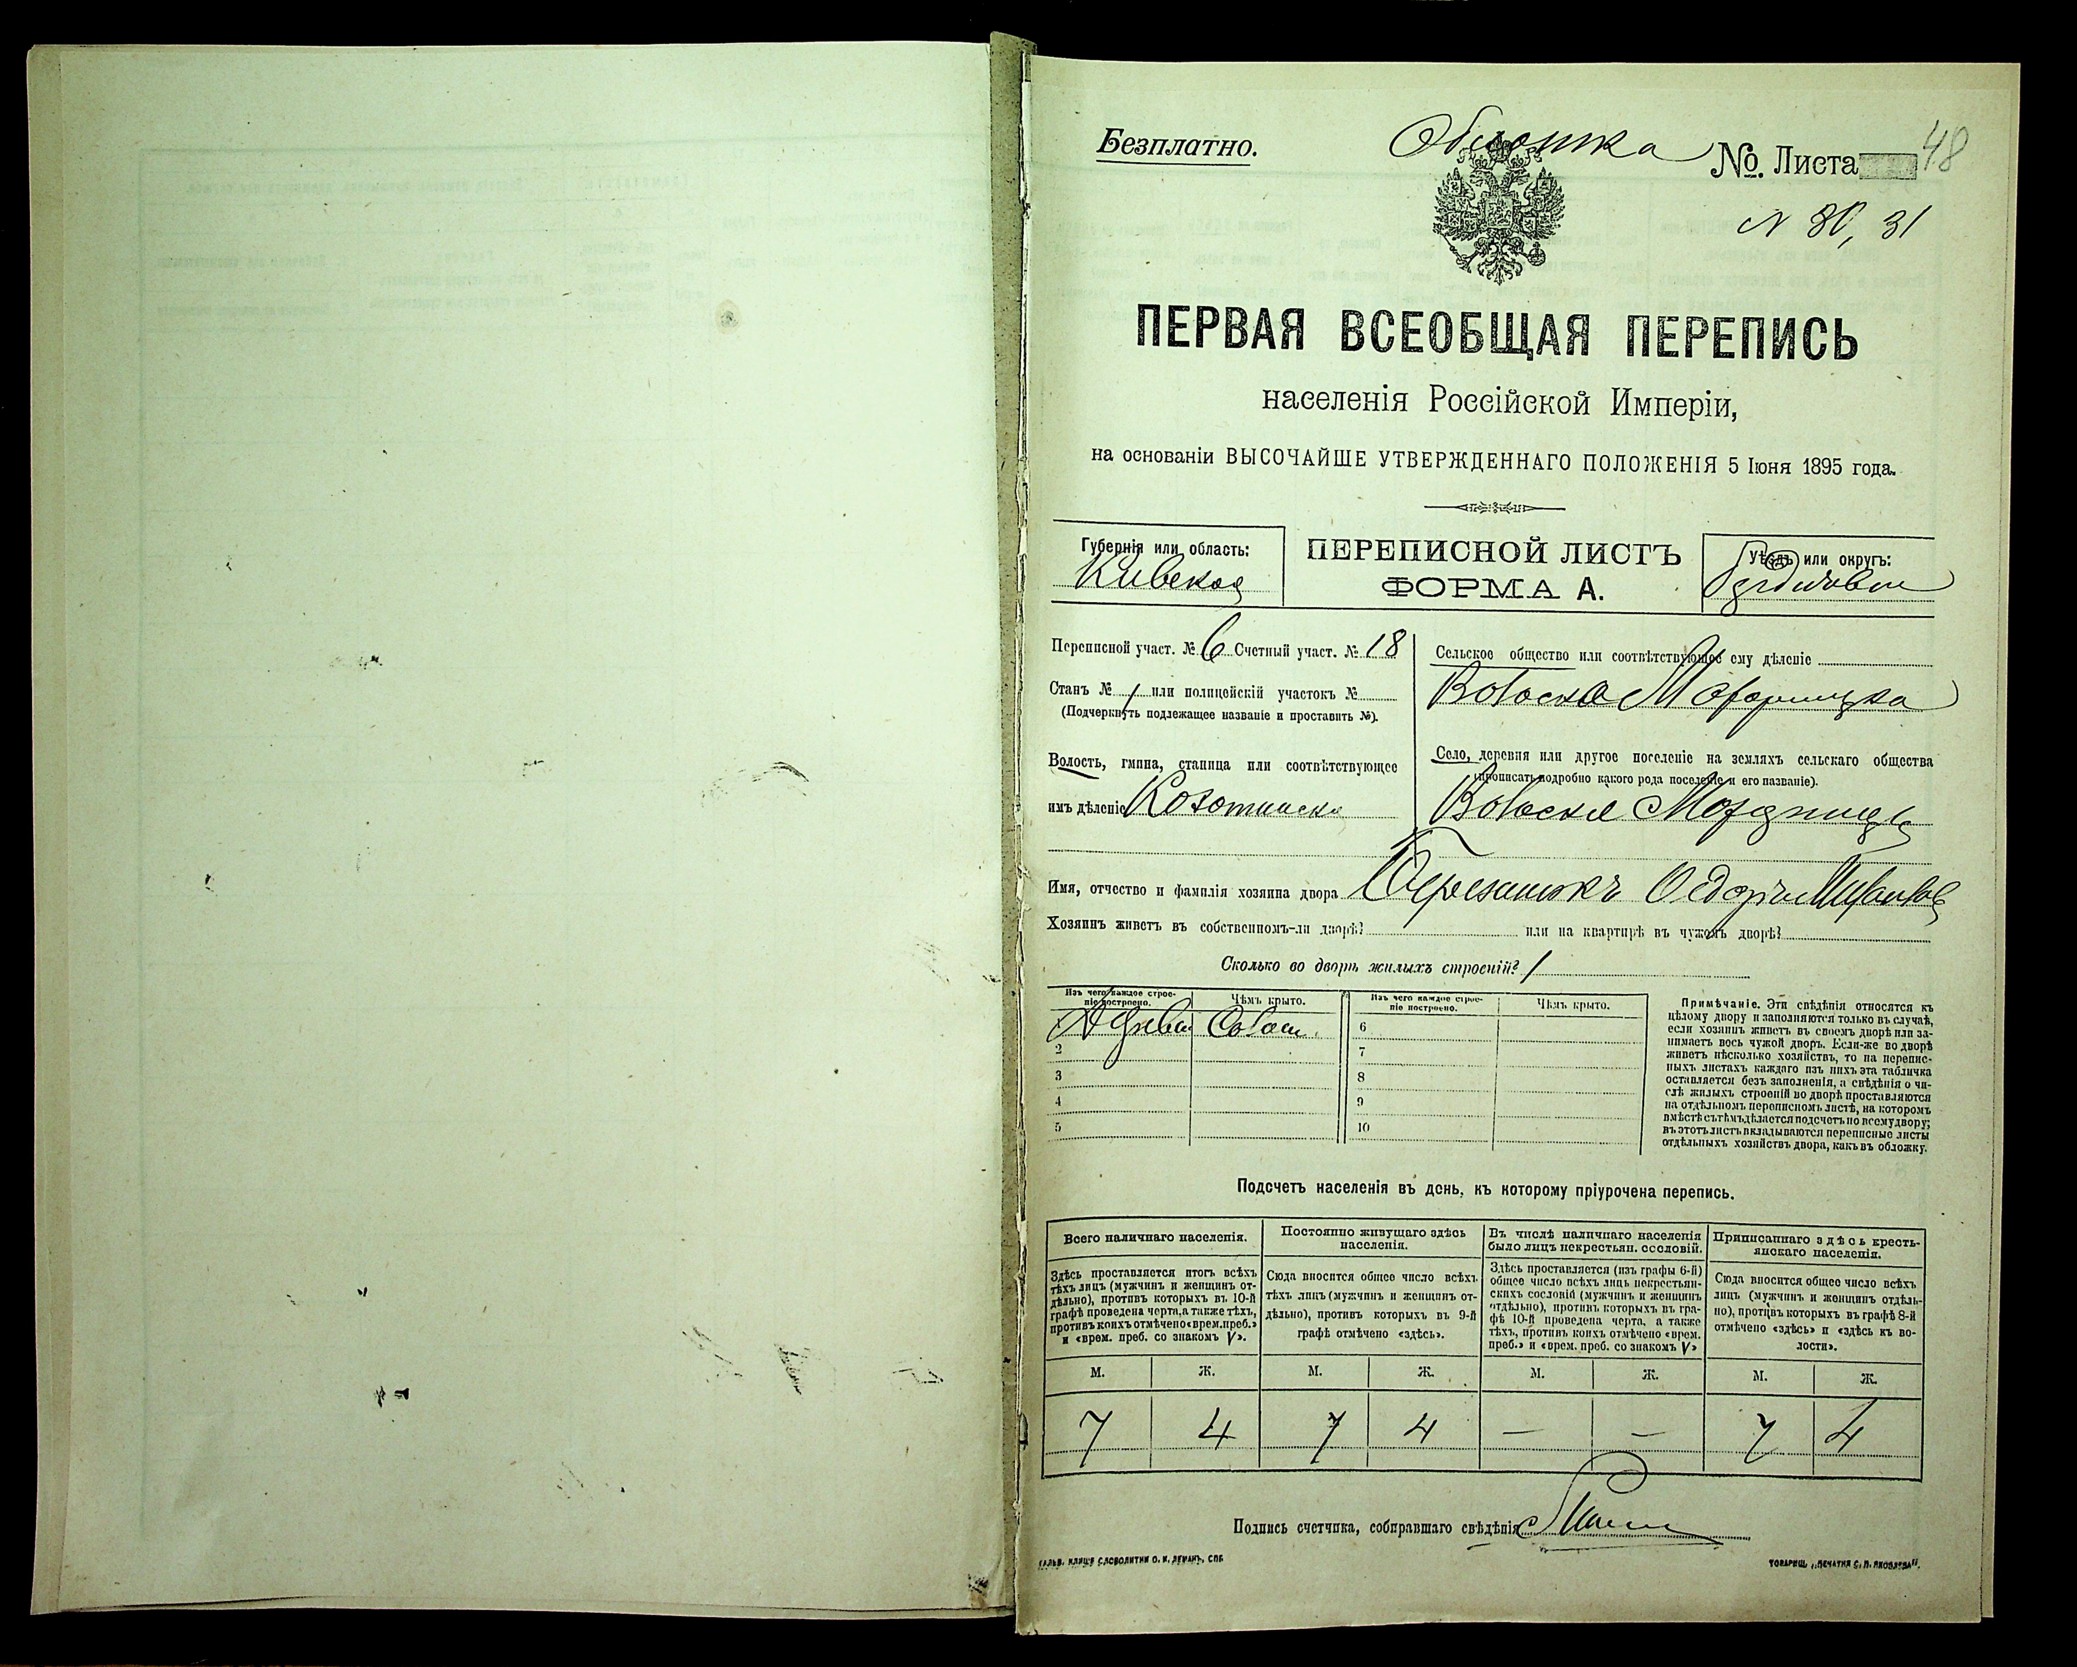 Безплатно.
Обложка
№ Листа 48
N 30, 31
ПЕРВАЯ ВСЕОБЩАЯ ПЕРЕПИСЬ
населенія Россійской Имперіи,
на основаніи ВЫСОЧАЙШЕ УТВЕРЖДЕННАГО ПОЛОЖЕНІЯ 5 Іюня 1895 года.
Губернія или область:
Кивская
ПЕРЕПИСНОЙ ЛИСТЪ
ФОРМА А.
Уѣздъ или округъ:
Переписной участ. № 6 Счетный участ. № 18
Станъ № 1 или полицейскій участокъ №
(Подчеркнуть подлежащее названіе и проставить №).
Волость, гмина, станица или соотвѣтствующее
имъ дѣленіе
Сельское общество или соотвѣтствующее ему дѣленіе
Село, деревня или другое поселеніе на земляхъ сельскаго общества
(прописать подробно какого рода поселеніе и его названіе).
Имя, отчество и фамилія хозяина двора
Хозяинъ живетъ въ собственномъ-ли дворѣ? или на квартирѣ въ чужомъ дворѣ?
Сколько во дворѣ жилыхъ строеній? 1
Изъ чего каждое строеніе построено.
Чѣмъ крыто.
Изъ чего каждое строеніе построено.
Чѣмъ крыто.
6
2
7
3
8
4
9
5
10
Примѣчаніе. Эти свѣдѣнія относятся къ
цѣлому двору и заполняются только въ случаѣ,
если хозяинъ живетъ въ своемъ дворѣ или за-
нимаетъ весь чужой дворъ. Если-же во дворѣ
живетъ нѣсколько хозяйствъ, то на перепис-
ныхъ листахъ каждаго изъ нихъ эта табличка
оставляется безъ заполненія, а свѣдѣнія о чи-
слѣ жилыхъ строеній во дворѣ проставляются
на отдѣльномъ переписномъ листѣ, на которомъ
вмѣстѣ съ тѣмъ дѣлается подсчетъ по всему двору;
въ этотъ листъ вкладываются переписные листы
отдѣльныхъ хозяйствъ двора, какъ въ обложку.
Подсчетъ населенія въ день, къ которому пріурочена перепись.
Всего наличнаго населенія.
Здѣсь проставляется итогъ всѣхъ
тѣхъ лицъ (мужчинъ и женщинъ от-
дѣльно), противъ которыхъ въ 10-й
графѣ проведена черта, а также тѣхъ,
противъ коихъ отмѣчено «врем. преб.»
и «врем. преб. со знакомъ V».
Постоянно живущаго здѣсь
населенія.
Сюда вносится общее число всѣхъ
тѣхъ лицъ (мужчинъ и женщинъ от-
дѣльно), противъ которыхъ въ 9-й
графѣ отмѣчено «здѣсь».
Въ числѣ наличнаго населенія
было лицъ некрестьян. сословій.
Здѣсь проставляется (изъ графы 6-й)
общее число всѣхъ лицъ некрестьян-
скихъ сословій (мужчинъ и женщинъ
отдѣльно), противъ которыхъ въ гра-
фѣ 10-й проведена черта, а также
тѣхъ, противъ коихъ отмѣчено «врем.
преб.» и «врем. преб. со знакомъ V»
Приписаннаго здѣсь кресть-
янскаго населенія.
Сюда вносится общее число всѣхъ
лицъ (мужчинъ и женщинъ отдѣль-
но), противъ которыхъ въ графѣ 8-й
отмѣчено «здѣсь» и «здѣсь къ во-
лости».
М. Ж. М. Ж. М. Ж. М. Ж.
7 4 7 4 — — 7 4
Подпись счетчика, собиравшаго свѣдѣнія
ГАЛЬВ. КЛИШЕ СЛОВОЛИТНИ О. И. ЛЕМАНЪ, СПБ
ТОВАРИЩ. „ПЕЧАТНЯ С. П. ЯКОВЛЕВА“.